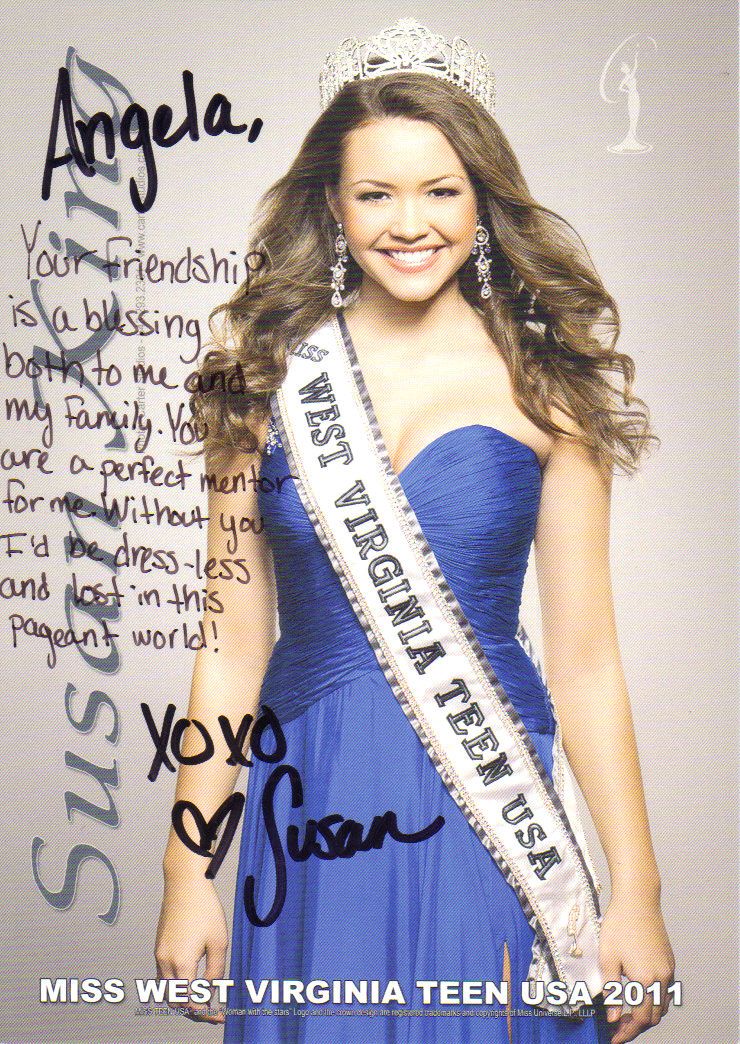 Angela,
Your friendship
is a blessing
both to me and
my family. You
are a perfect mentor
for me. Without you
I'd be dress-less
and lost in this
pageant world!
xoxo
♡ Susan
Susan King
MISS WEST VIRGINIA TEEN USA
MISS WEST VIRGINIA TEEN USA 2011
MISS TEEN USA and the "Woman with the stars" Logo and the crown design are registered trademarks and copyrights of Miss Universe L.P., LLLP